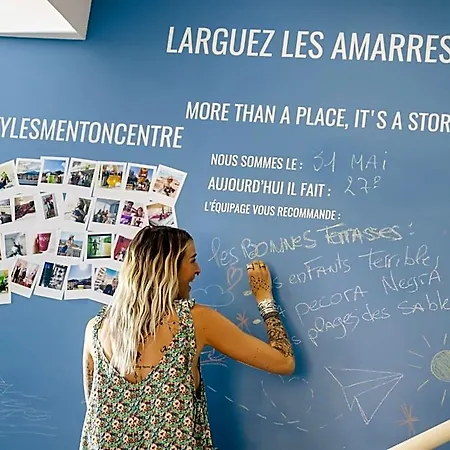 LARGUEZ LES AMARRES
MORE THAN A PLACE, IT'S A STOR
YLESMENTONCENTRE
NOUS SOMMES LE : 31 MAI
AUJOURD'HUI IL FAIT : 27°
L'ÉQUIPAGE VOUS RECOMMANDE :
les BONNES TERRASSES :
ENFANTS TERRIBLE,
PECORA NEGRA
PLAGES des SABLE